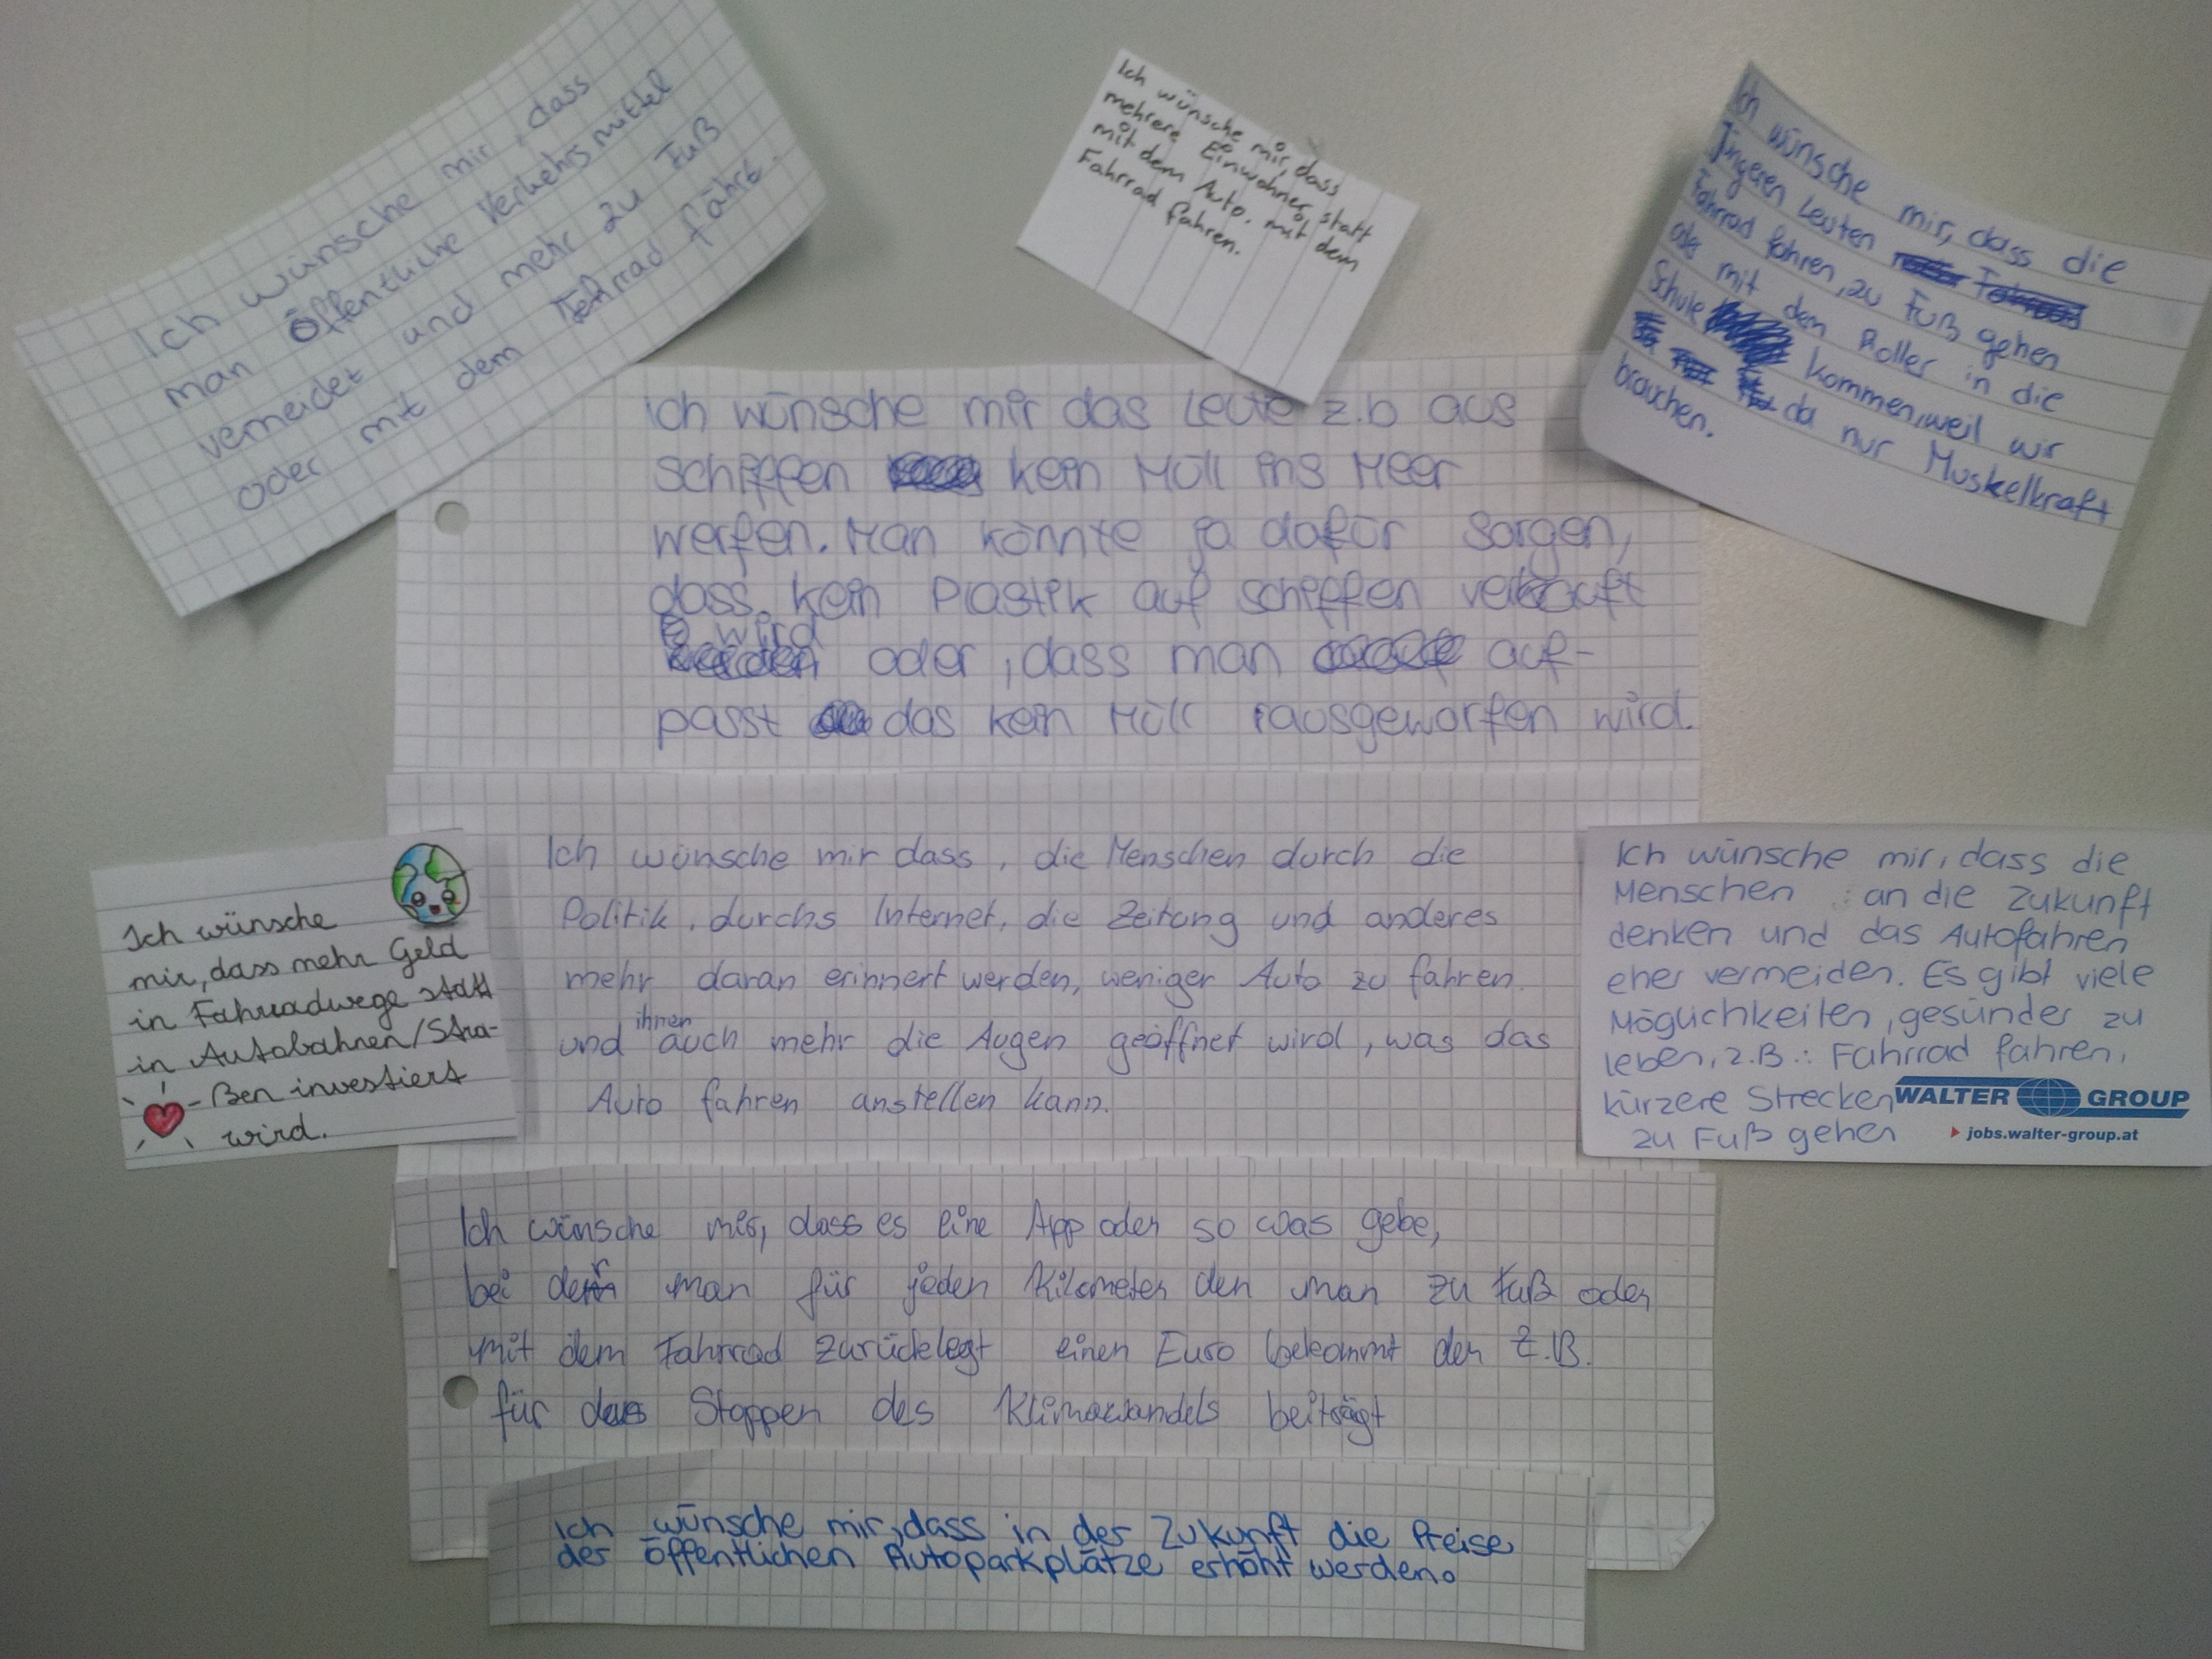 Ich wünsche mir, dass
man öffentliche Verkehrsmittel
vermeidet und mehr zu Fuß
oder mit dem Fahrrad fährt.
Ich wünsche mir, dass
mehrere Einwohner statt
mit dem Auto. mit dem
Fahrrad fahren.
Ich wünsche mir, dass die
Jüngeren Leuten
Fahrrad fahren, zu Fuß gehen
oda mit dem Roller in die
Schule kommen, weil wir
da nur Muskelkraft
brauchen.
Ich wünsche mir das Leute z.b aus
schiffen kein Müll ins Meer
werfen. Man könnte ja dafür sorgen,
dass, kein Plastik auf schiffen verkauft
wird
oder, dass man auf-
passt das kein Müll rausgeworfen wird.
Ich wünsche
mir, dass mehr Geld
in Fahrradwege statt
in Autobahnen/Stra-
-ßen investiert
wird.
Ich wünsche mir dass, die Menschen durch die
Politik, durchs Internet, die Zeitung und anderes
mehr daran erinnert werden, weniger Auto zu fahren
und ihnen auch mehr die Augen geöffnet wird, was das
Auto fahren anstellen kann.
Ich wünsche mir, dass die
Menschen an die Zukunft
denken und das Autofahren
eher vermeiden. Es gibt viele
Möglichkeiten, gesünder zu
leben, z.B.: Fahrrad fahren,
kürzere Strecken
zu Fuß gehen
WALTER GROUP
jobs.walter-group.at
Ich wünsche mir, dass es eine App oder so was gebe,
bei der man für jeden Kilometer den man zu Fuß oder
mit dem Fahrrad zurücklegt einen Euro bekommt der z.B.
für das Stoppen des Klimawandels beiträgt
Ich wünsche mir, dass in der Zukunft die Preise
der öffentlichen Autoparkplätze erhöht werden.